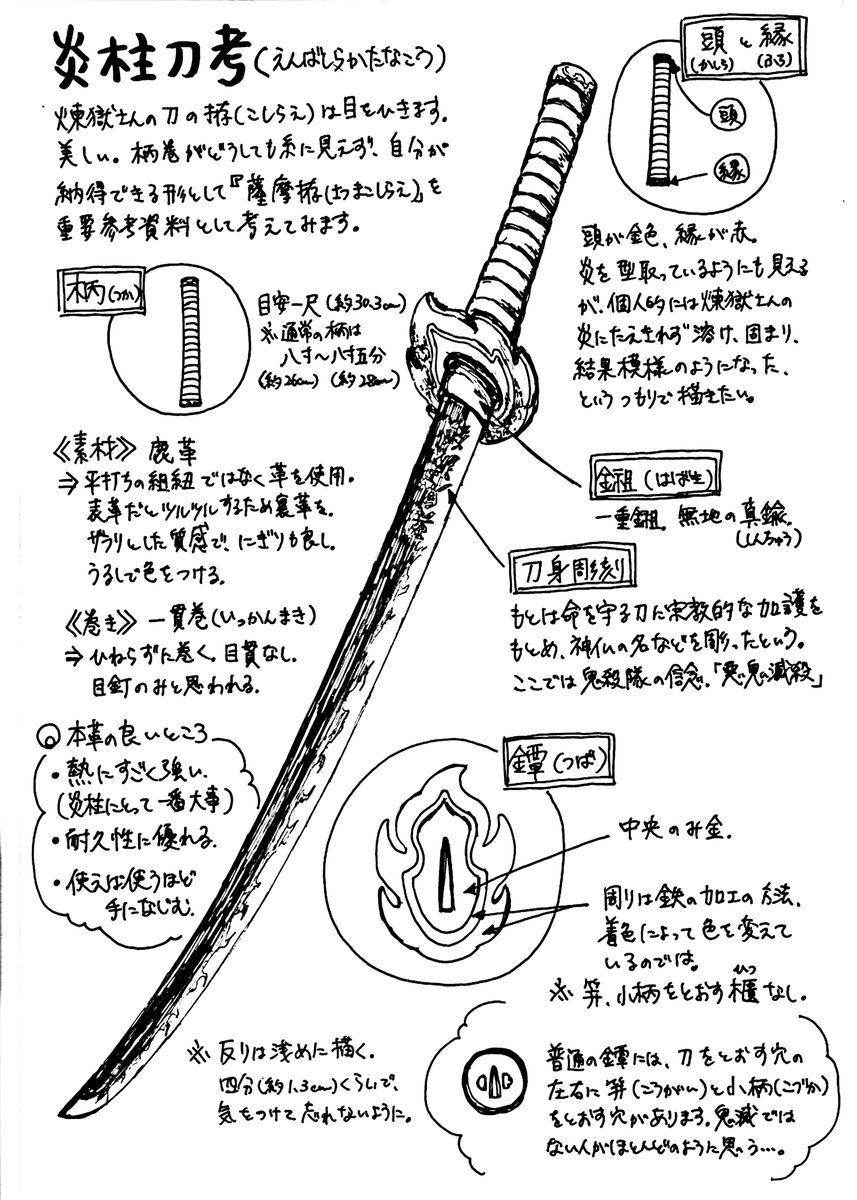 炎柱刀考(えんばしらかたなこう)
煉獄さんの刀の拵(こしらえ)は目をひきます。
美しい。柄巻がどうしても糸に見えず、自分が
納得できる形として『薩摩拵(さつまこしらえ)』を
重要参考資料として考えてみます。
頭と縁
(かしら)(ふち)
頭
縁
頭が金色、縁が赤。
炎を型取っているようにも見える
が、個人的には煉獄さんの
炎にたえきれず溶け、固まり、
結果模様のようになった、
というつもりで描きたい。
柄(つか)
目安一尺(約30.3cm)
※通常の柄は
八寸〜八寸五分
(約26cm)(約28cm)
《素材》鹿革
⇒平打ちの組紐ではなく革を使用。
表革だとツルツルするため裏革を。
ザラリとした質感で、にぎりも良し。
うるしで色をつける。
《巻き》一貫巻(いっかんまき)
⇒ひねらずに巻く。目貫なし。
目釘のみと思われる。
◎本革の良いところ
・熱にすごく強い
(炎柱にとって一番大事)
・耐久性に優れる
・使えば使うほど
手になじむ。
鎺(はばき)
一重鎺。無地の真鍮。
(しんちゅう)
刀身彫刻
もとは命を守る刀に宗教的な加護を
もとめ、神仏の名などを彫ったという。
ここでは鬼殺隊の信念、「悪鬼滅殺」
鐔(つば)
中央のみ金。
周りは鉄の加工の方法、
着色によって色を変えて
いるのでは。
※笄、小柄をとおす櫃なし。
ひつ
※反りは浅めに描く。
四分(約1.3cm)くらいで、
気をつけて忘れないように。
普通の鐔には、刀をとおす穴の
左右に笄(こうがい)と小柄(こづか)
をとおす穴があります。鬼滅では
ない人がほとんどのように思う…。